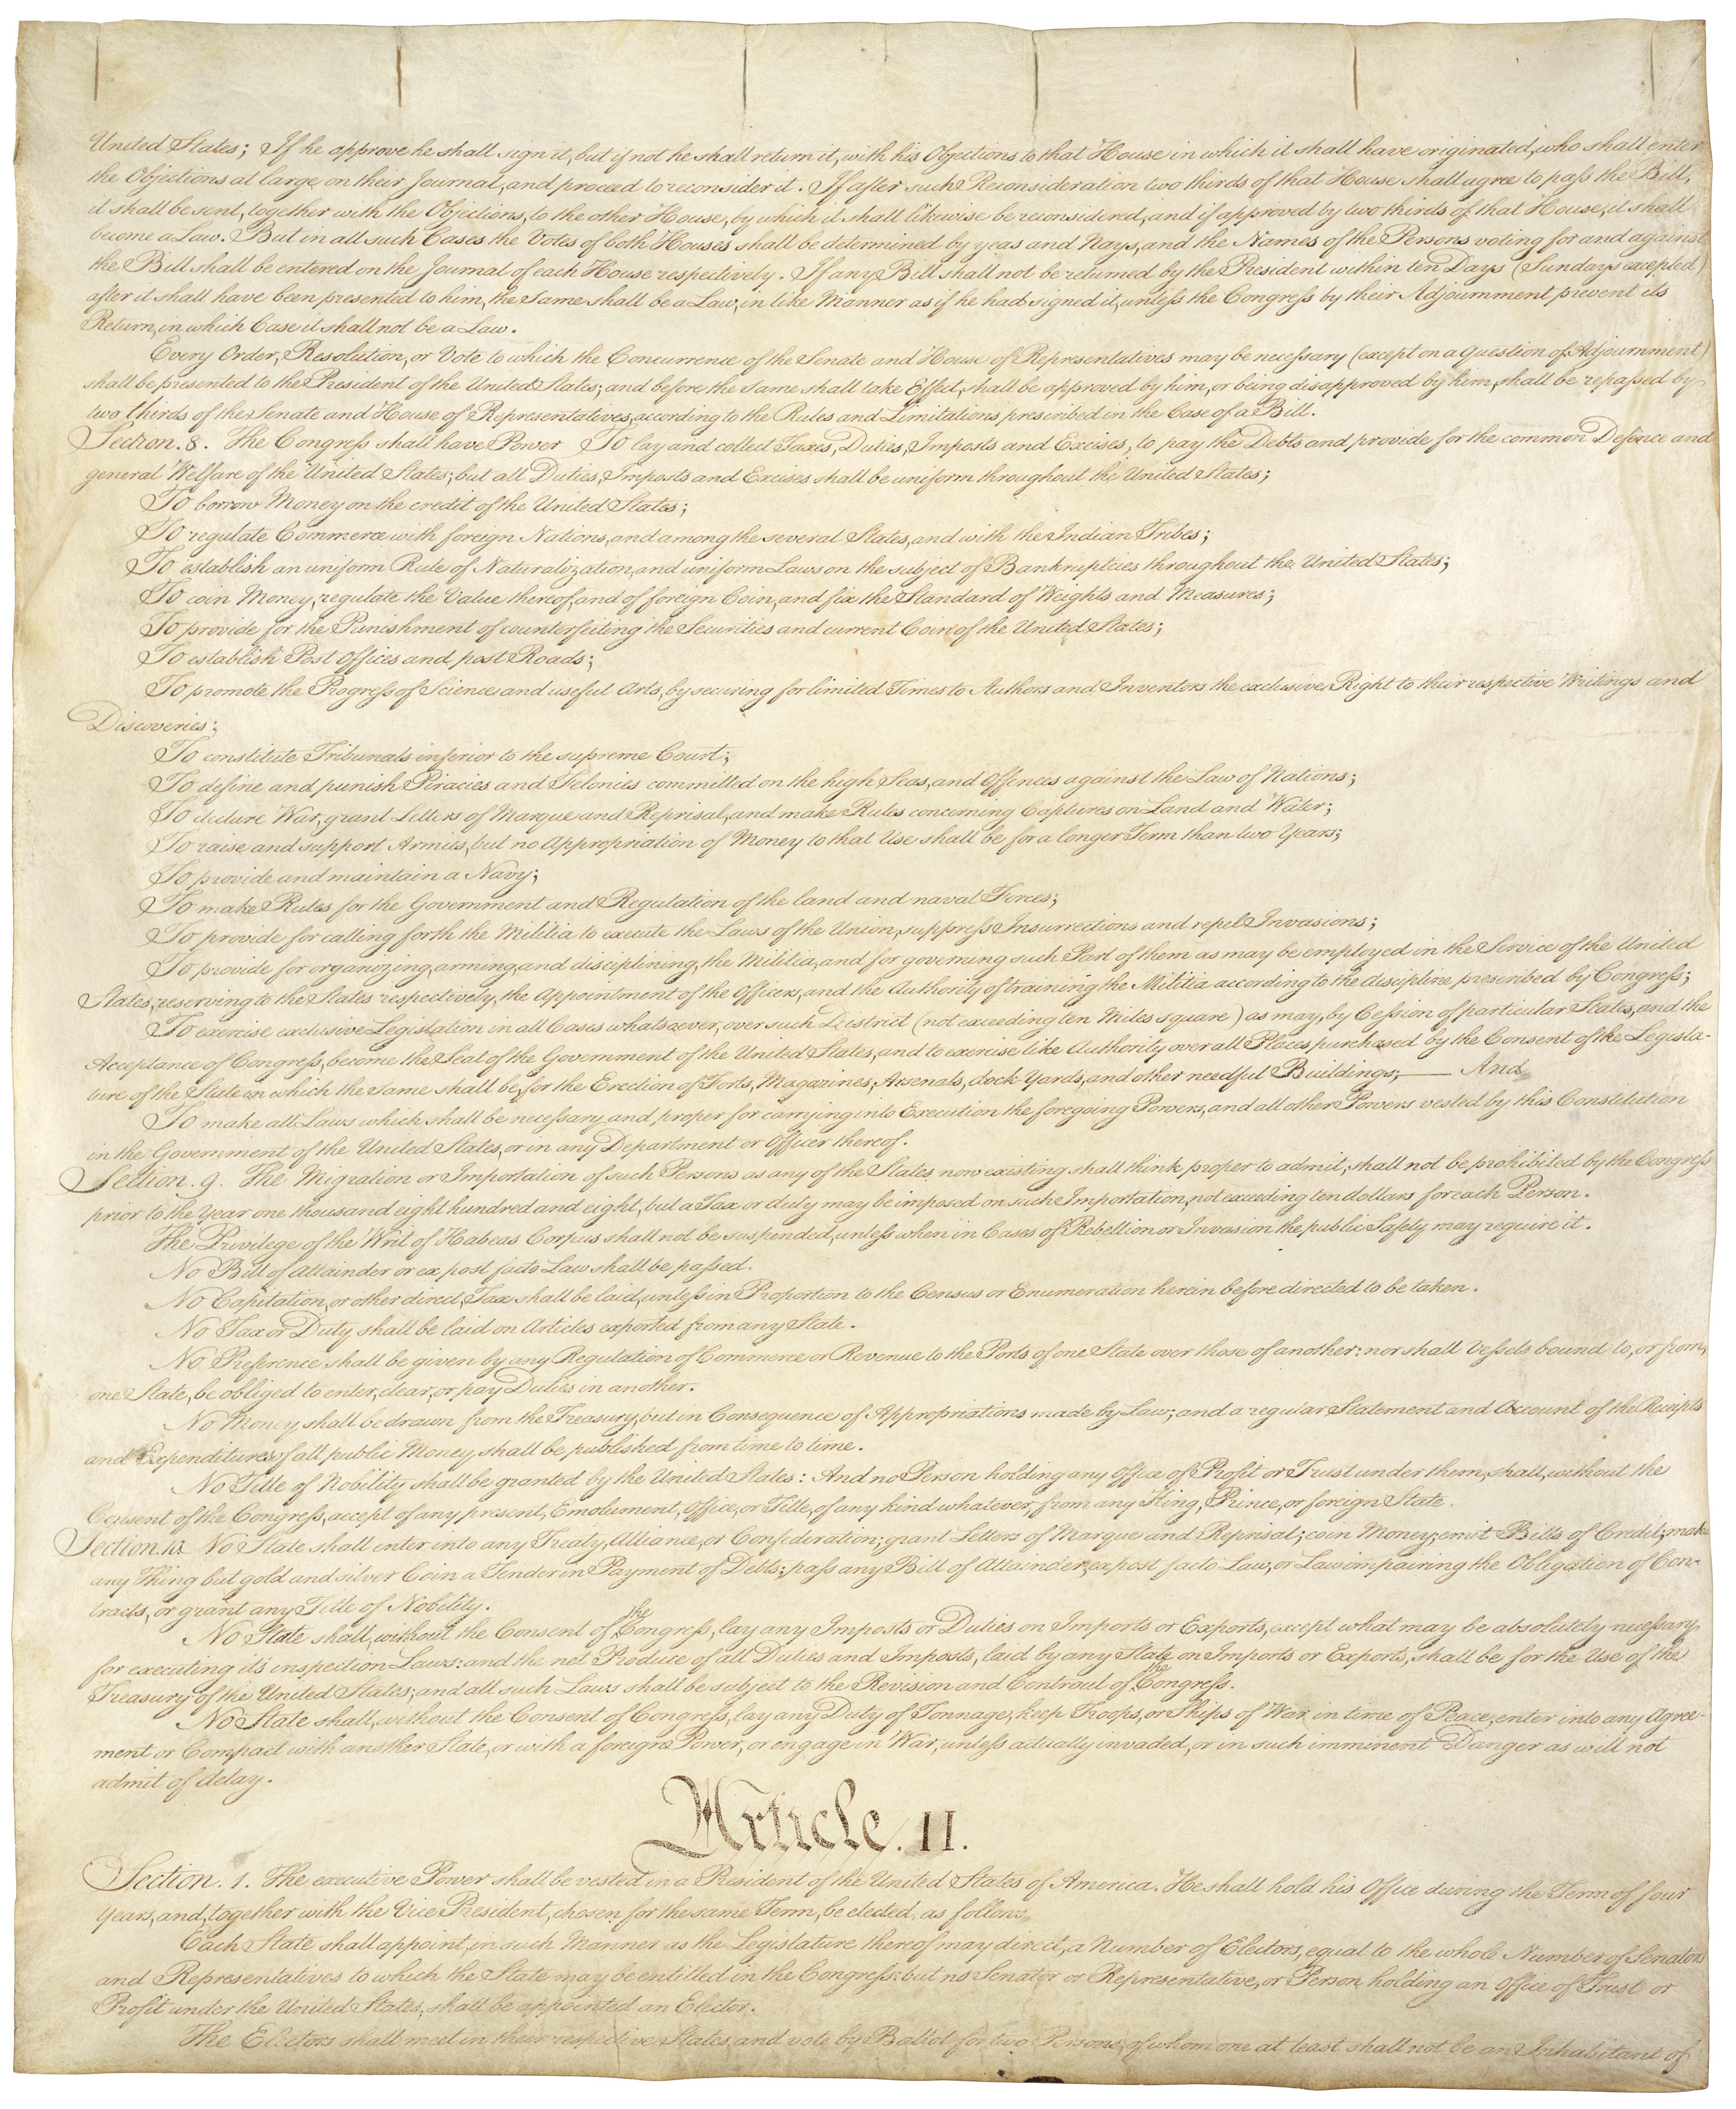 United States; If he approve he shall sign it, but if not he shall return it, with his Objections to that House in which it shall have originated, who shall enter
the Objections at large on their Journal, and proceed to reconsider it. If after such Reconsideration two thirds of that House shall agree to pass the Bill,
it shall be sent, together with the Objections, to the other House, by which it shall likewise be reconsidered, and if approved by two thirds of that House, it shall
become a Law. But in all such Cases the Votes of both Houses shall be determined by yeas and Nays, and the Names of the Persons voting for and against
the Bill shall be entered on the Journal of each House respectively. If any Bill shall not be returned by the President within ten Days (Sundays excepted)
after it shall have been presented to him, the Same shall be a Law, in like Manner as if he had signed it, unless the Congress by their Adjournment prevent its
Return, in which Case it shall not be a Law.
Every Order, Resolution, or Vote to which the Concurrence of the Senate and House of Representatives may be necessary (except on a question of Adjournment)
shall be presented to the President of the United States; and before the Same shall take Effect, shall be approved by him, or being disapproved by him, shall be repassed by
two thirds of the Senate and House of Representatives, according to the Rules and Limitations prescribed in the Case of a Bill.
Section. 8. The Congress shall have Power To lay and collect Taxes, Duties, Imposts and Excises, to pay the Debts and provide for the common Defence and
general Welfare of the United States; but all Duties, Imposts and Excises shall be uniform throughout the United States;
To borrow Money on the credit of the United States;
To regulate Commerce with foreign Nations, and among the several States, and with the Indian Tribes;
To establish an uniform Rule of Naturalization, and uniform Laws on the subject of Bankruptcies throughout the United States;
To coin Money, regulate the Value thereof, and of foreign Coin, and fix the Standard of Weights and Measures;
To provide for the Punishment of counterfeiting the Securities and current Coin of the United States;
To establish Post Offices and post Roads;
To promote the Progress of Science and useful Arts, by securing for limited Times to Authors and Inventors the exclusive Right to their respective Writings and
Discoveries;
To constitute Tribunals inferior to the supreme Court;
To define and punish Piracies and Felonies committed on the high Seas, and Offences against the Law of Nations;
To declare War, grant Letters of Marque and Reprisal, and make Rules concerning Captures on Land and Water;
To raise and support Armies, but no Appropriation of Money to that Use shall be for a longer Term than two Years;
To provide and maintain a Navy;
To make Rules for the Government and Regulation of the land and naval Forces;
To provide for calling forth the Militia to execute the Laws of the Union, suppress Insurrections and repel Invasions;
To provide for organizing, arming, and disciplining, the Militia, and for governing such Part of them as may be employed in the Service of the United
States, reserving to the States respectively, the Appointment of the Officers, and the Authority of training the Militia according to the discipline prescribed by Congress;
To exercise exclusive Legislation in all Cases whatsoever, over such District (not exceeding ten Miles square) as may, by Cession of particular States, and the
Acceptance of Congress, become the Seat of the Government of the United States, and to exercise like Authority over all Places purchased by the Consent of the Legisla-
ture of the State in which the Same shall be, for the Erection of Forts, Magazines, Arsenals, dock-Yards, and other needful Buildings;— And
To make all Laws which shall be necessary and proper for carrying into Execution the foregoing Powers, and all other Powers vested by this Constitution
in the Government of the United States, or in any Department or Officer thereof.
Section. 9. The Migration or Importation of such Persons as any of the States now existing shall think proper to admit, shall not be prohibited by the Congress
prior to the Year one thousand eight hundred and eight, but a Tax or duty may be imposed on such Importation, not exceeding ten dollars for each Person.
The Privilege of the Writ of Habeas Corpus shall not be suspended, unless when in Cases of Rebellion or Invasion the public Safety may require it.
No Bill of Attainder or ex post facto Law shall be passed.
No Capitation, or other direct, Tax shall be laid, unless in Proportion to the Census or Enumeration herein before directed to be taken.
No Tax or Duty shall be laid on Articles exported from any State.
No Preference shall be given by any Regulation of Commerce or Revenue to the Ports of one State over those of another: nor shall Vessels bound to, or from,
one State, be obliged to enter, clear, or pay Duties in another.
No Money shall be drawn from the Treasury, but in Consequence of Appropriations made by Law; and a regular Statement and Account of the Receipts
and Expenditures of all public Money shall be published from time to time.
No Title of Nobility shall be granted by the United States: And no Person holding any Office of Profit or Trust under them, shall, without the
Consent of the Congress, accept of any present, Emolument, Office, or Title, of any kind whatever, from any King, Prince, or foreign State.
Section. 10. No State shall enter into any Treaty, Alliance, or Confederation; grant Letters of Marque and Reprisal; coin Money; emit Bills of Credit; make
any Thing but gold and silver Coin a Tender in Payment of Debts; pass any Bill of Attainder, ex post facto Law, or Law impairing the Obligation of Con-
tracts, or grant any Title of Nobility.
No State shall, without the Consent of the Congress, lay any Imposts or Duties on Imports or Exports, except what may be absolutely necessary
for executing it's inspection Laws: and the net Produce of all Duties and Imposts, laid by any State on Imports or Exports, shall be for the Use of the
Treasury of the United States; and all such Laws shall be subject to the Revision and Controul of the Congress.
No State shall, without the Consent of Congress, lay any Duty of Tonnage, keep Troops, or Ships of War in time of Peace, enter into any Agree-
ment or Compact with another State, or with a foreign Power, or engage in War, unless actually invaded, or in such imminent Danger as will not
admit of delay.
Article. II.
Section. 1. The executive Power shall be vested in a President of the United States of America. He shall hold his Office during the Term of four
Years, and, together with the Vice President, chosen for the same Term, be elected, as follows
Each State shall appoint, in such Manner as the Legislature thereof may direct, a Number of Electors, equal to the whole Number of Senators
and Representatives to which the State may be entitled in the Congress: but no Senator or Representative, or Person holding an Office of Trust or
Profit under the United States, shall be appointed an Elector.
The Electors shall meet in their respective States, and vote by Ballot for two Persons, of whom one at least shall not be an Inhabitant of